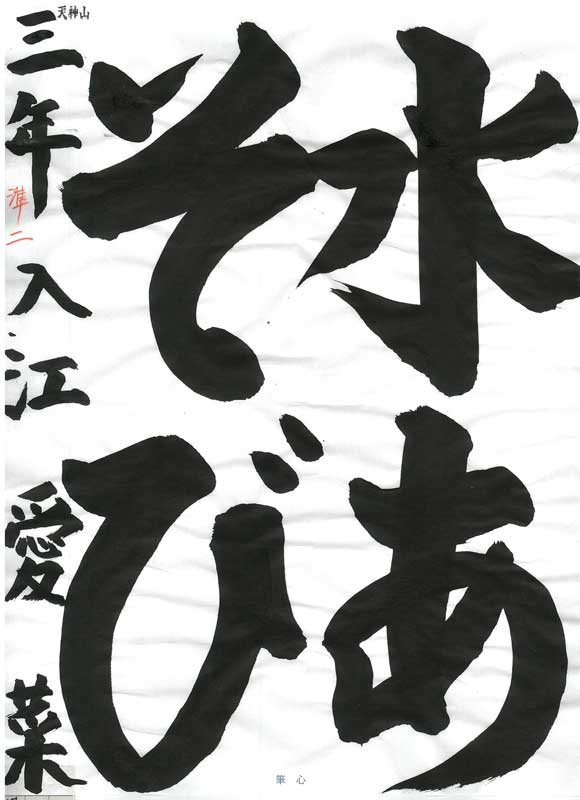 水あ
そび
天神山
三年 入江 愛菜
準二
筆心